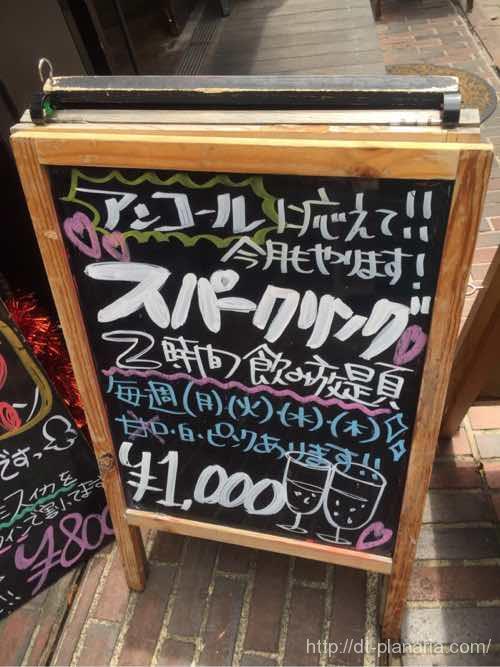 アンコールに応えて!!
今月もやります!
スパークリング
2時間飲み放題
毎週(月)・(火)・(水)・(木)
甘口・白・ピンクあります!!
¥1,000
ですっ
スイカを
¥800
http://dt-planaria.com/